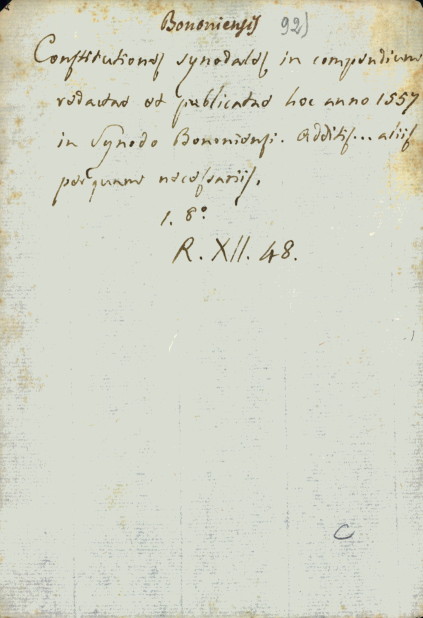 Bononiensis 92)
Constitutiones synodales in compendium
redactae et publicatae hoc anno 1557
in Synodo Bononiensi. Additis... aliis
perquam necessariis.
1. 8°
R. XII. 48.
C